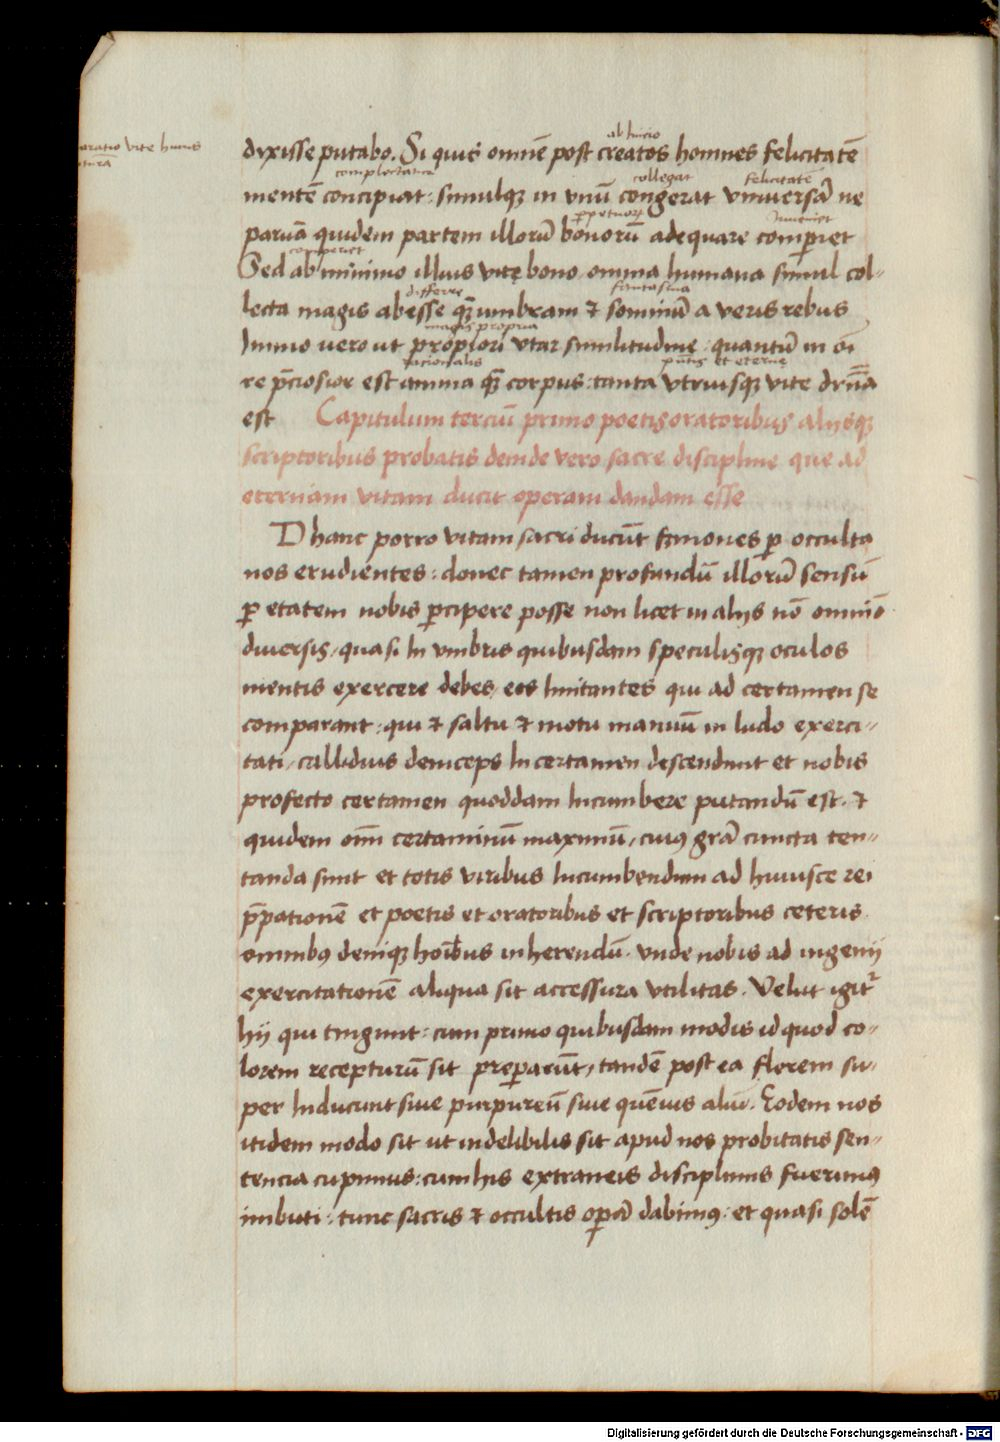 ab inicio
aratio vite huius
turā
dixisse putabo. Si quis omnē post creatos homines felicitatē
complectatur collegat felicitatē
mentē concipiat: simulqꝫ in vnū congerat vniuersā ne
perpetuorū Inueniet
paruā quidem partem illorū bonorū adequare comperiet
comperiet
Sed ab minimo illius vitę bono omnia humana simul col-
differre fantasma
lecta magis abesse qꝫ umbram ⁊ somniū a veris rebus
magis propria
Immo uero ut propiori vtar similitudine: quantū in oī
racionalis pn̄tis et eterne
re p̄ciosior est anima qꝫ corpus: tanta vtriusqꝫ vite drn̄a
est Capitulum terciū primo poetis oratoribus alijsqꝫ
scriptoribus probatis deinde vero sacre discipline que ad
eternam vitam ducit operam dandam esse
D hanc porro vitam sacri ducūt sermones ꝑ occulta
nos erudientes: donec tamen profundū illorū sensū
ꝑ etatem nobis ꝑcipere posse non licet in alijs nō omnīo
diuersis, quasi In vmbris quibusdam speculisqꝫ oculos
mentis exercere debes, eos Imitantes qui ad certamen se
comparant: qui ⁊ saltu ⁊ motu manuū in ludo exerci-
tati, callidius deinceps In certamen descendunt et nobis
profecto certamen quoddam Incumbere putandū est. ⁊
quidem om̄ī certaminū maximū, cuiꝰ grā cuncta ten-
tanda sunt et totis viribus Incumbendum ad huiusce rei
p̄pationē et poetis et oratoribus et scriptoribus ceteris
omnibꝰ deniqꝫ hoībus inherendū. vnde nobis ad ingenij
exercitationē aliqua sit accessura vtilitas. Velut igitr
hij qui tingunt: cum primo quibusdam modis id quod co-
lorem recepturū sit preꝑarūt, tandē post ea florem su-
per Inducunt siue purpureū siue quēuis aliū. Eodem nos
itidem modo sit ut indelibilis sit apud nos probitatis sen-
tencia cupimus: cum his extraneis disciplinis fuerimꝰ
imbuti: tunc sacris ⁊ occultis oꝑā dabimꝰ: et quasi solē
Digitalisierung gefördert durch die Deutsche Forschungsgemeinschaft - DFG